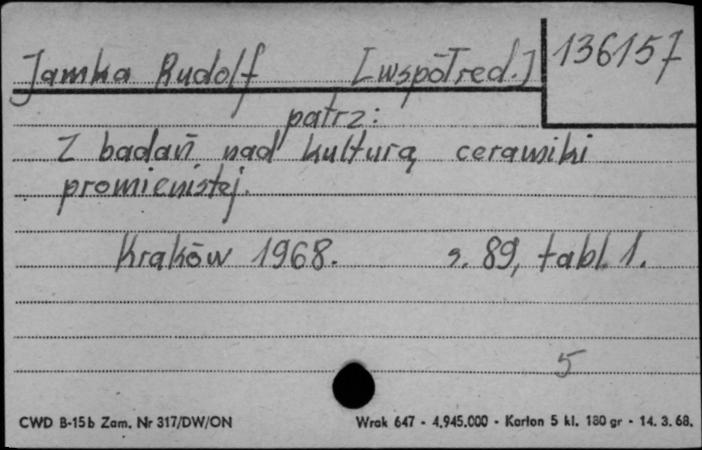 Jamka Rudolf [współred.] 136157
patrz:
Z badań nad kulturą ceramiki
promienistej.
Kraków 1968. s. 89, tabl. 1.
5
CWD B-15b Zam. Nr 317/DW/ON Wrak 647 - 4.945.000 - Karton 5 kl. 180 gr - 14. 3. 68.